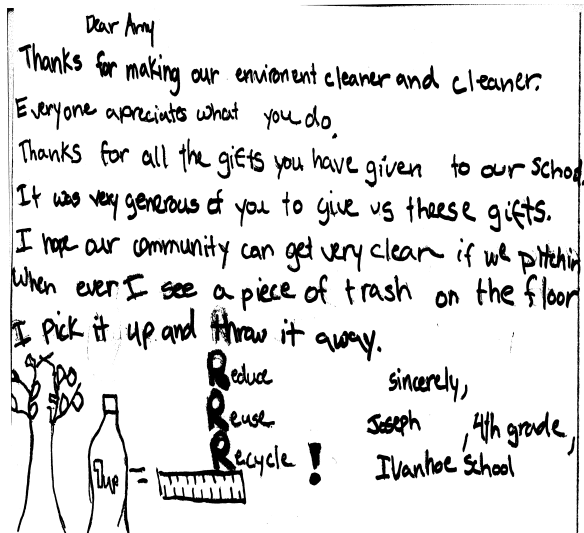 Dear Amy
Thanks for making our enviroment cleaner and cleaner.
Everyone apreciates what you do.
Thanks for all the gifts you have given to our school.
It was very generous of you to give us theese gifts.
I hope our community can get very clean if we pitchin
When ever I see a piece of trash on the floor
I pick it up and throw it away.
Reduce
Reuse
Recycle !
sincerely,
Joseph , 4th grade,
Ivanhoe School
7up =